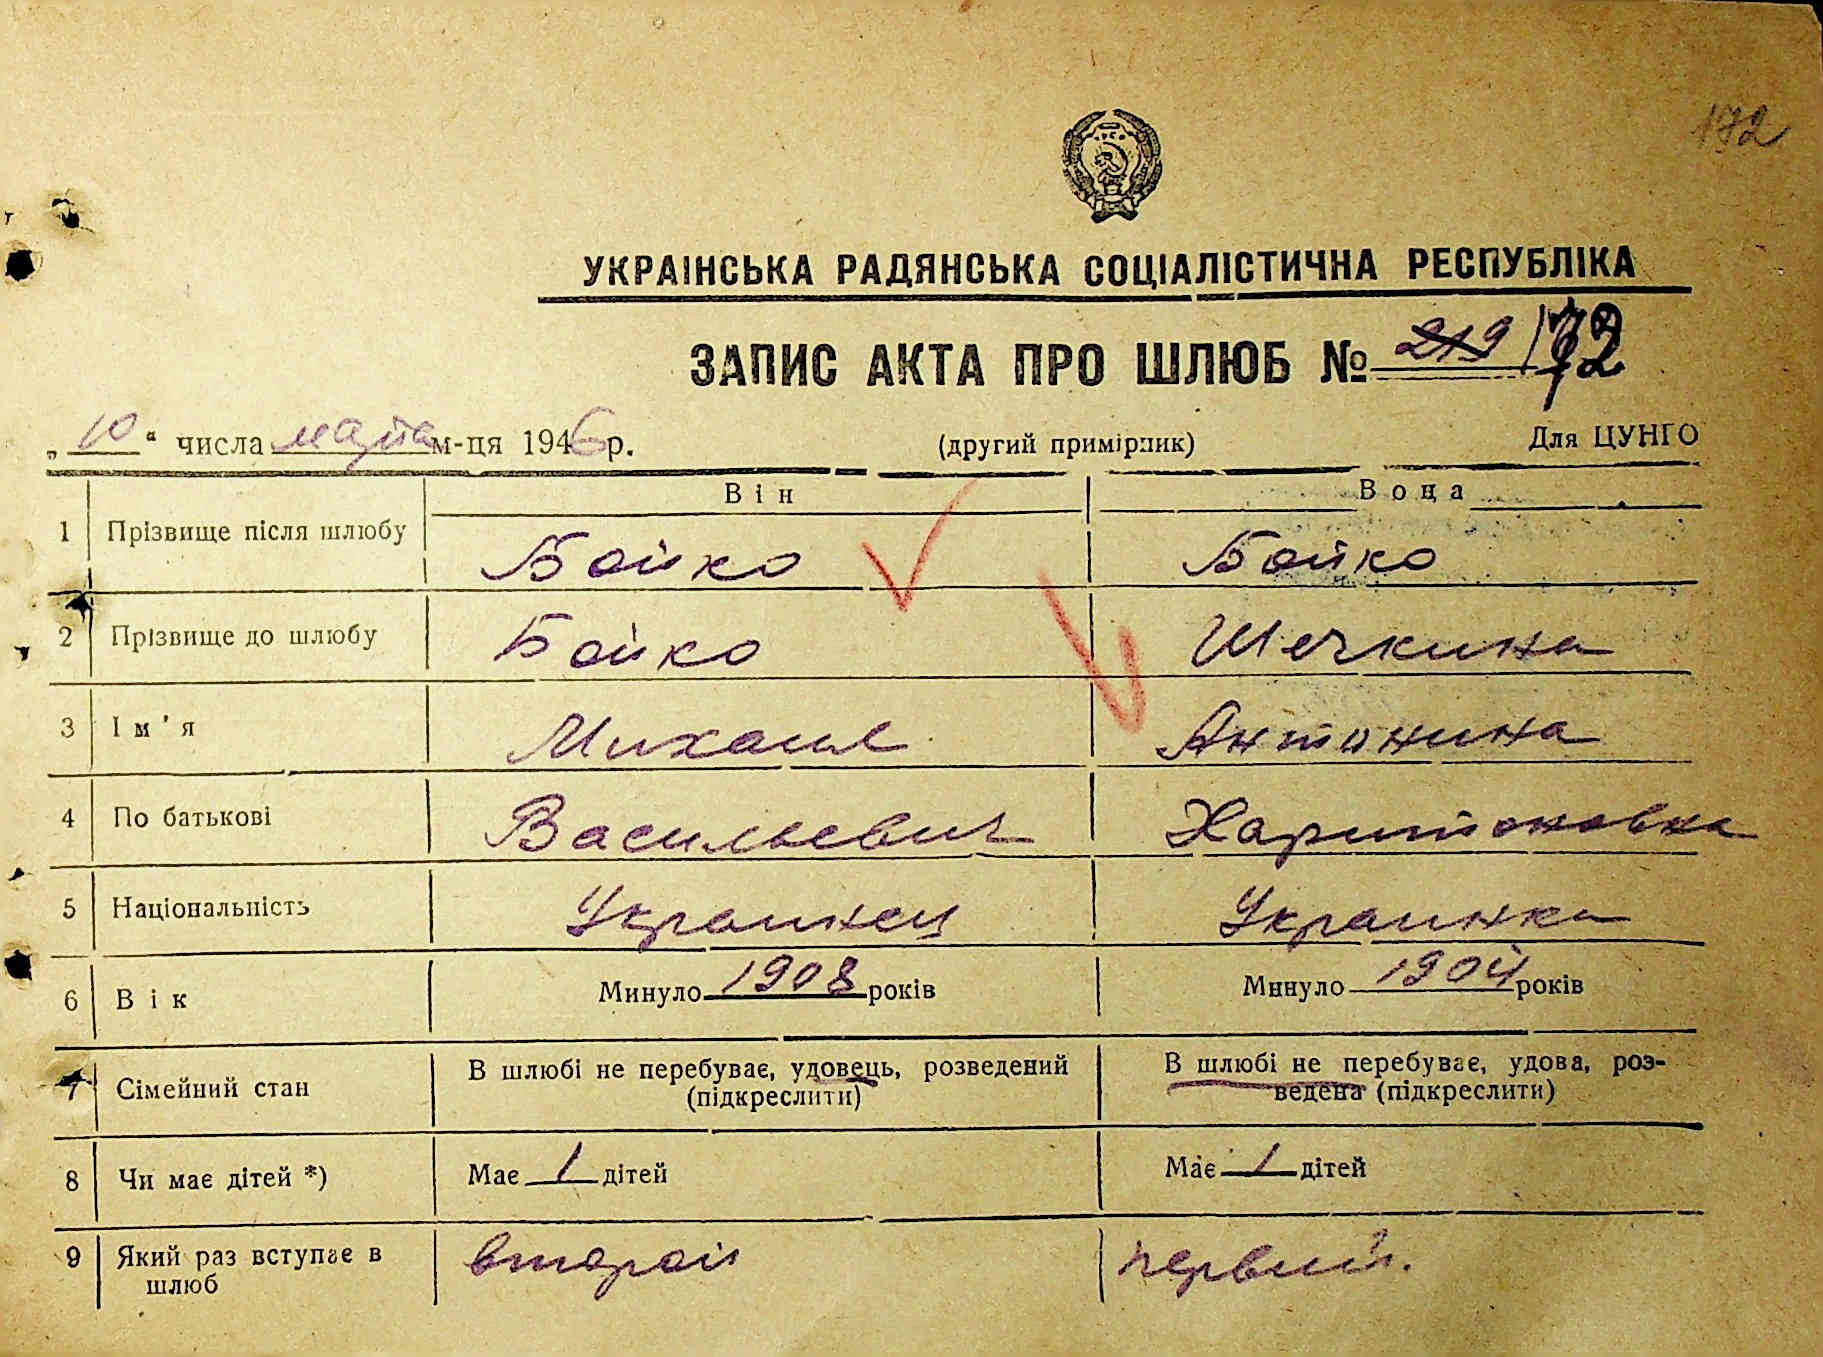 172
УКРАІНСЬКА РАДЯНСЬКА СОЦІАЛІСТИЧНА РЕСПУБЛІКА
ЗАПИС АКТА ПРО ШЛЮБ № 219 172
„10“ числа мая м-ця 1946 р. (другий примірник) Для ЦУНГО
Він Вона
1 Прізвище після шлюбу Бойко Бойко
2 Прізвище до шлюбу Бойко Шечкина
3 Ім'я Михаил Антонина
4 По батькові Васильевич Харитоновна
5 Національність Украинец Украинка
6 Вік Минуло 1908 років Минуло 1904 років
7 Сімейний стан В шлюбі не перебуває, удовець, розведений В шлюбі не перебуває, удова, роз-
(підкреслити) ведена (підкреслити)
8 Чи має дітей *) Має 1 дітей Має 1 дітей
9 Який раз вступає в второй первый.
шлюб